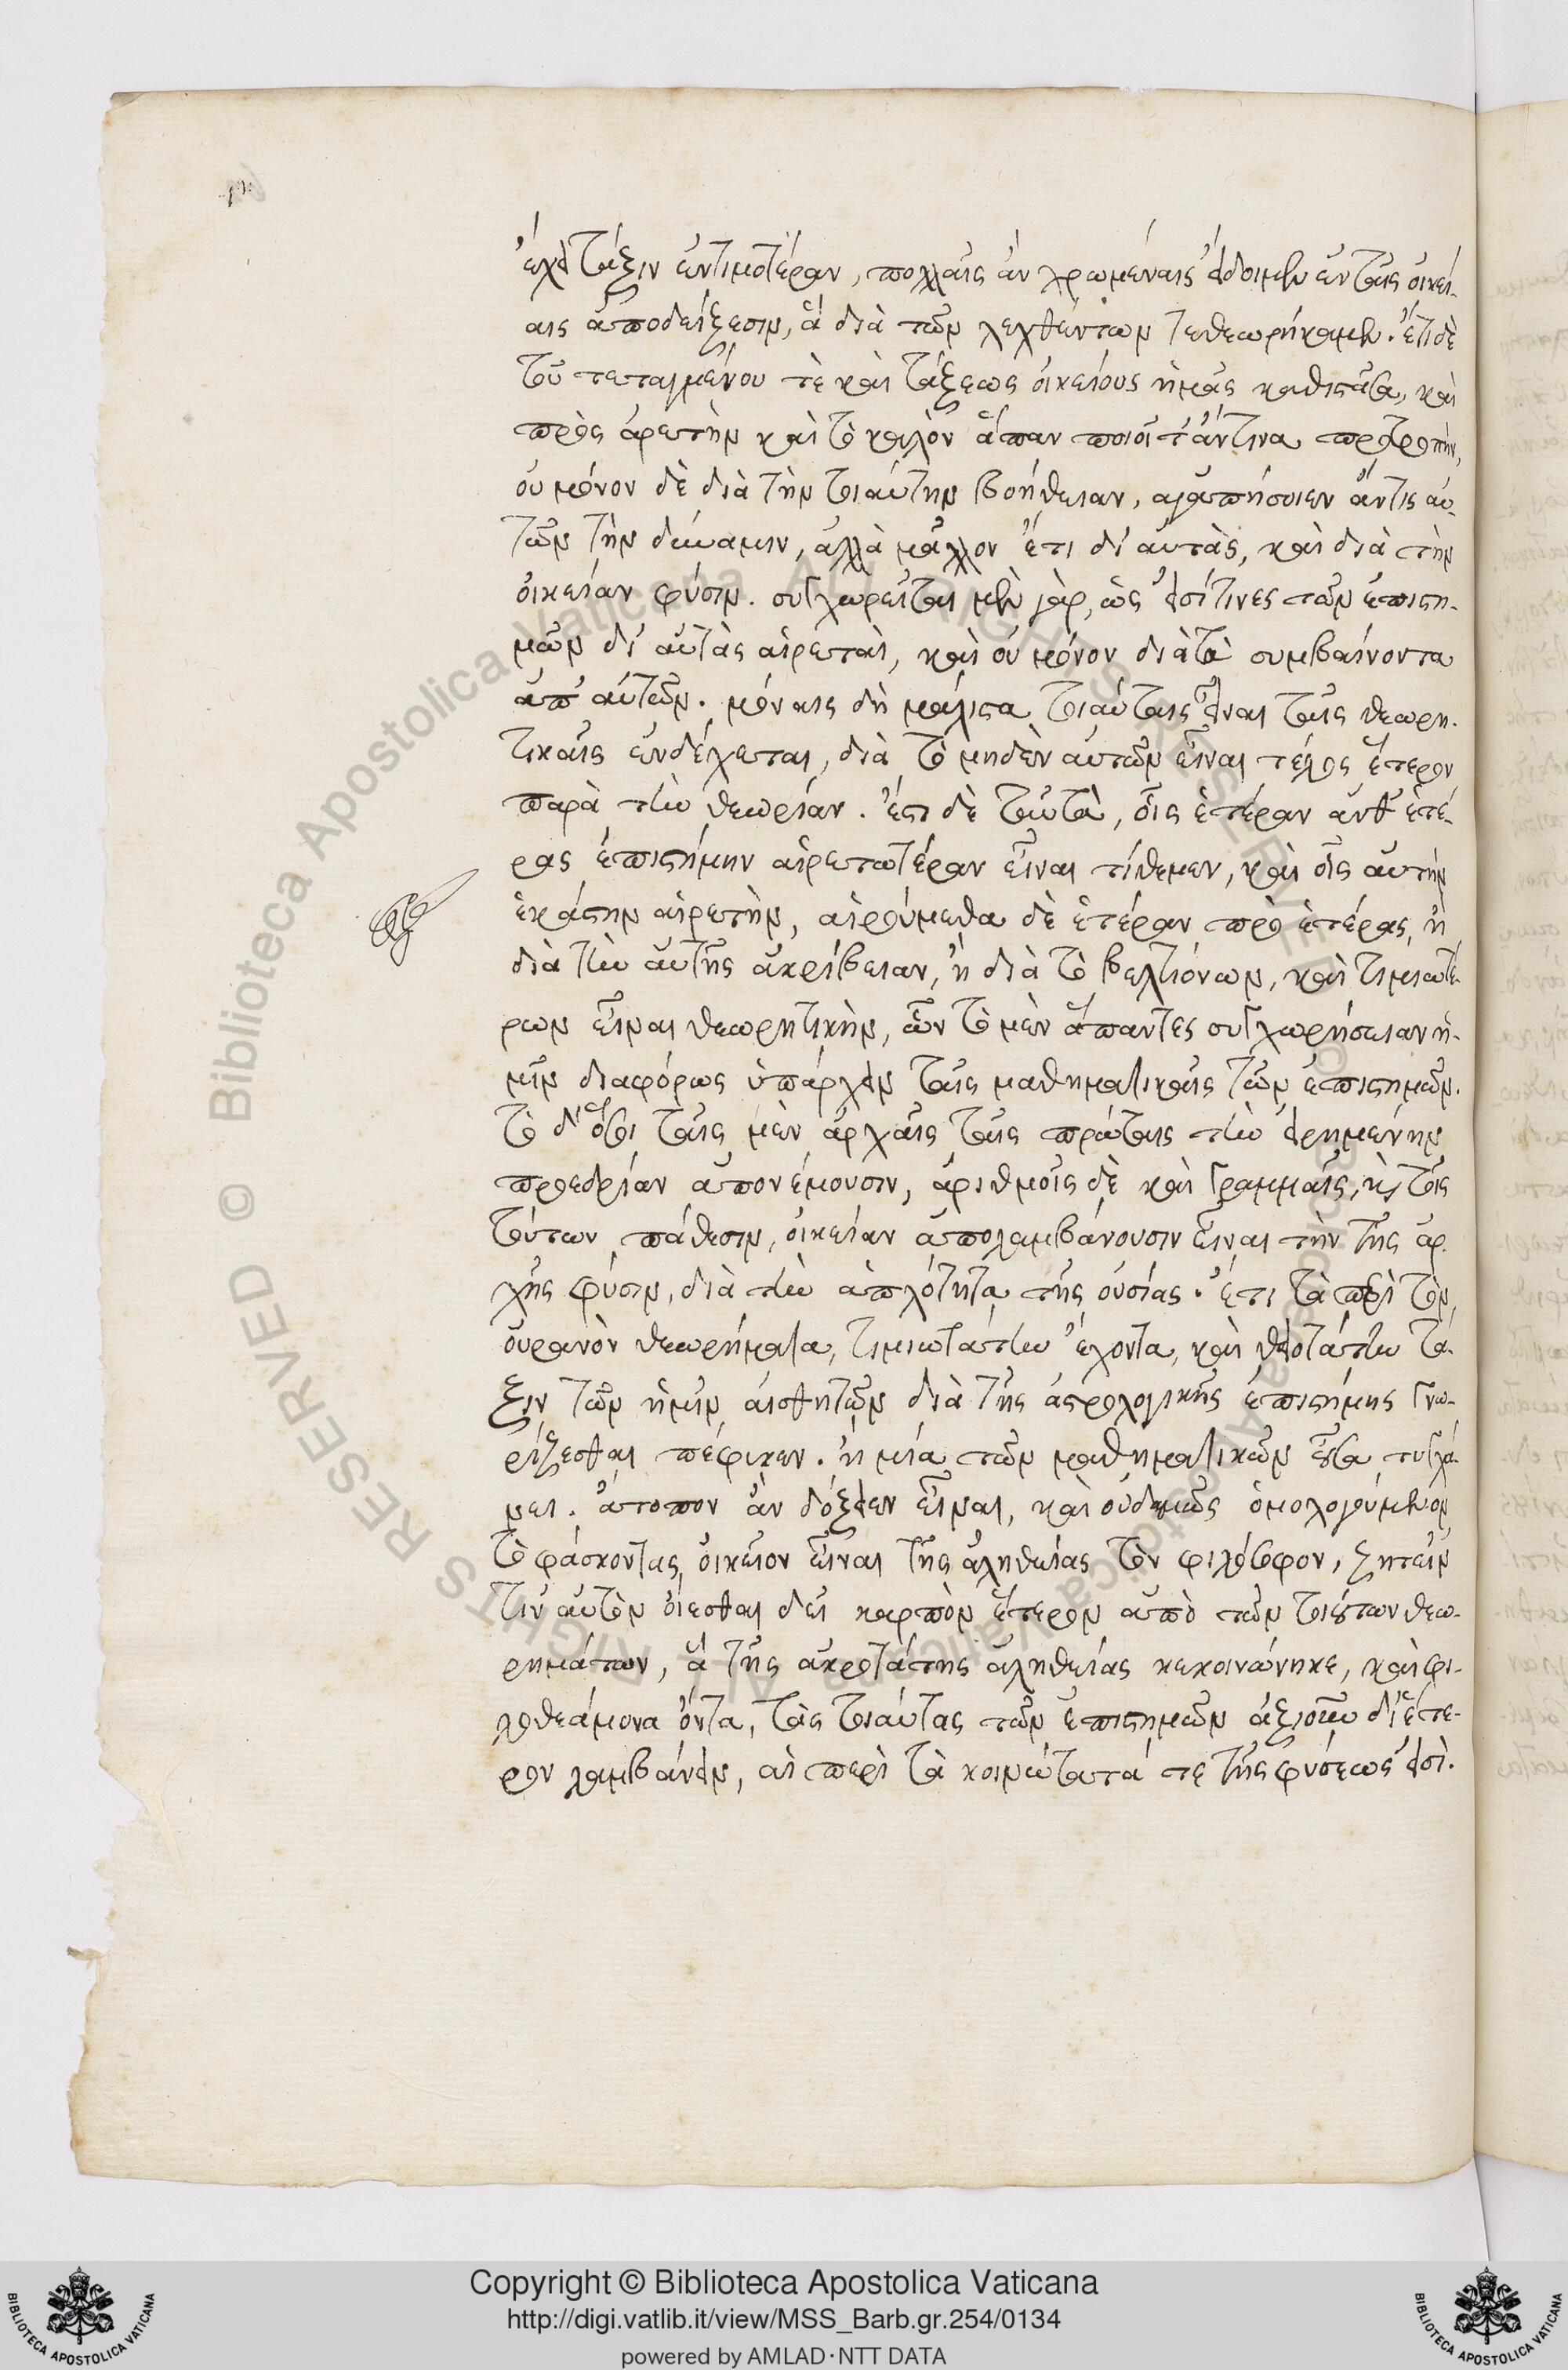 ἔχει τάξιν ἐντιμοτέραν, πολλαῖς ἂν χρωμέναις εἴδοιμεν ἐν ταῖς οἰκεί-
αις ἀποδείξεσιν, ἃ διὰ τῶν λεχθέντων τεθεωρήκαμεν. ἔτι δὲ
τοῦ τεταγμένου τὲ καὶ τάξεως οἰκείους ἡμᾶς καθιστᾶσαι, καὶ
πρὸς ἀρετὴν καὶ τὸ καλὸν ἅπαν ποιοῖντ' ἄν τινα προτροπὴν,
οὐ μόνον δὲ διὰ τὴν τοιαύτην βοήθειαν, ἀγαπήσοιεν ἄν τις αὐ-
τῶν τὴν δύναμιν, ἀλλὰ μᾶλλον ἔτι δι' αὐτὰς, καὶ διὰ τὴν
οἰκείαν φύσιν. συγχωρεῖται μὲν γὰρ, ὡς εἰσί τινες τῶν ἐπιστη-
μῶν δι' αὐτὰς αἱρεταὶ, καὶ οὐ μόνον διὰ τὰ συμβαίνοντα
ἀπ' αὐτῶν. μόναις δὴ μάλιστα τοιαύταις εἶναι ταῖς θεωρη-
τικαῖς ἐνδέχεται, διὰ τὸ μηδὲν αὐτῶν εἶναι τέλος ἕτερον
παρὰ τὴν θεωρίαν. ἔστι δὲ ταῦτα, οἷς ἑτέραν ἀνθ' ἑτέ-
ρας ἐπιστήμην αἱρετωτέραν εἶναι τίθεμεν, καὶ οἷς αὐτὴν
ἑκάστην αἱρετὴν, αἱρούμεθα δὲ ἑτέραν πρὸ ἑτέρας, ἢ
διὰ τὴν αὐτῆς ἀκρίβειαν, ἢ διὰ τὸ βελτιόνων, καὶ τιμιωτέ-
ρων εἶναι θεωρητικὴν, ὧν τὸ μὲν ἅπαντες συγχωρήσειαν ἡ-
μῖν διαφόρως ὑπάρχειν ταῖς μαθηματικαῖς τῶν ἐπιστημῶν.
τὸ δ' ὅσοι ταῖς μὲν ἀρχαῖς ταῖς πρώταις τὴν εἰρημένην
προεδρίαν ἀπονέμουσιν, ἀριθμοῖς δὲ καὶ γραμμαῖς, καὶ τοῖς
τούτων πάθεσιν, οἰκείαν ἀπολαμβάνουσιν εἶναι τὴν τῆς ἀρ-
χῆς φύσιν, διὰ τὴν ἁπλότητα τῆς οὐσίας. ἔτι τὰ περὶ τὸν
οὐρανὸν θεωρήματα, τιμιωτάτην ἔχοντα, καὶ θειοτάτην τά-
ξιν τῶν ἡμῖν αἰσθητῶν διὰ τῆς ἀστρολογικῆς ἐπιστήμης γνω-
ρίζεσθαι πέφυκεν. ἡ μία τῶν μαθηματικῶν οὖσα τυγχά-
νει. ἄτοπον ἂν δόξειεν εἶναι, καὶ οὐδαμῶς ὁμολογούμενον
τὸ φάσκοντας οἰκεῖον εἶναι τῆς ἀληθείας τὸν φιλόσοφον, ζητεῖν
τιν' αὐτὸν οἴεσθαι δεῖ καρπὸν ἕτερον ἀπὸ τῶν τοιούτων θεω-
ρημάτων, ἃ τῆς ἀκροτάτης ἀληθείας κεκοινώνηκε, καὶ φι-
λοθεάμονα ὄντα, τὰς τοιαύτας τῶν ἐπιστημῶν ἀξιοῦν δι' ἕτε-
ρον λαμβάνειν, αἳ περὶ τὰ κοινότατά τε τῆς φύσεώς εἰσι.
© Biblioteca Apostolica Vaticana ALL RIGHTS RESERVED © Biblioteca Apostolica Vaticana ALL RIGHTS RESERVED
Copyright © Biblioteca Apostolica Vaticana
http://digi.vatlib.it/view/MSS_Barb.gr.254/0134
powered by AMLAD·NTT DATA
BIBLIOTECA APOSTOLICA VATICANA
BIBLIOTECA APOSTOLICA VATICANA